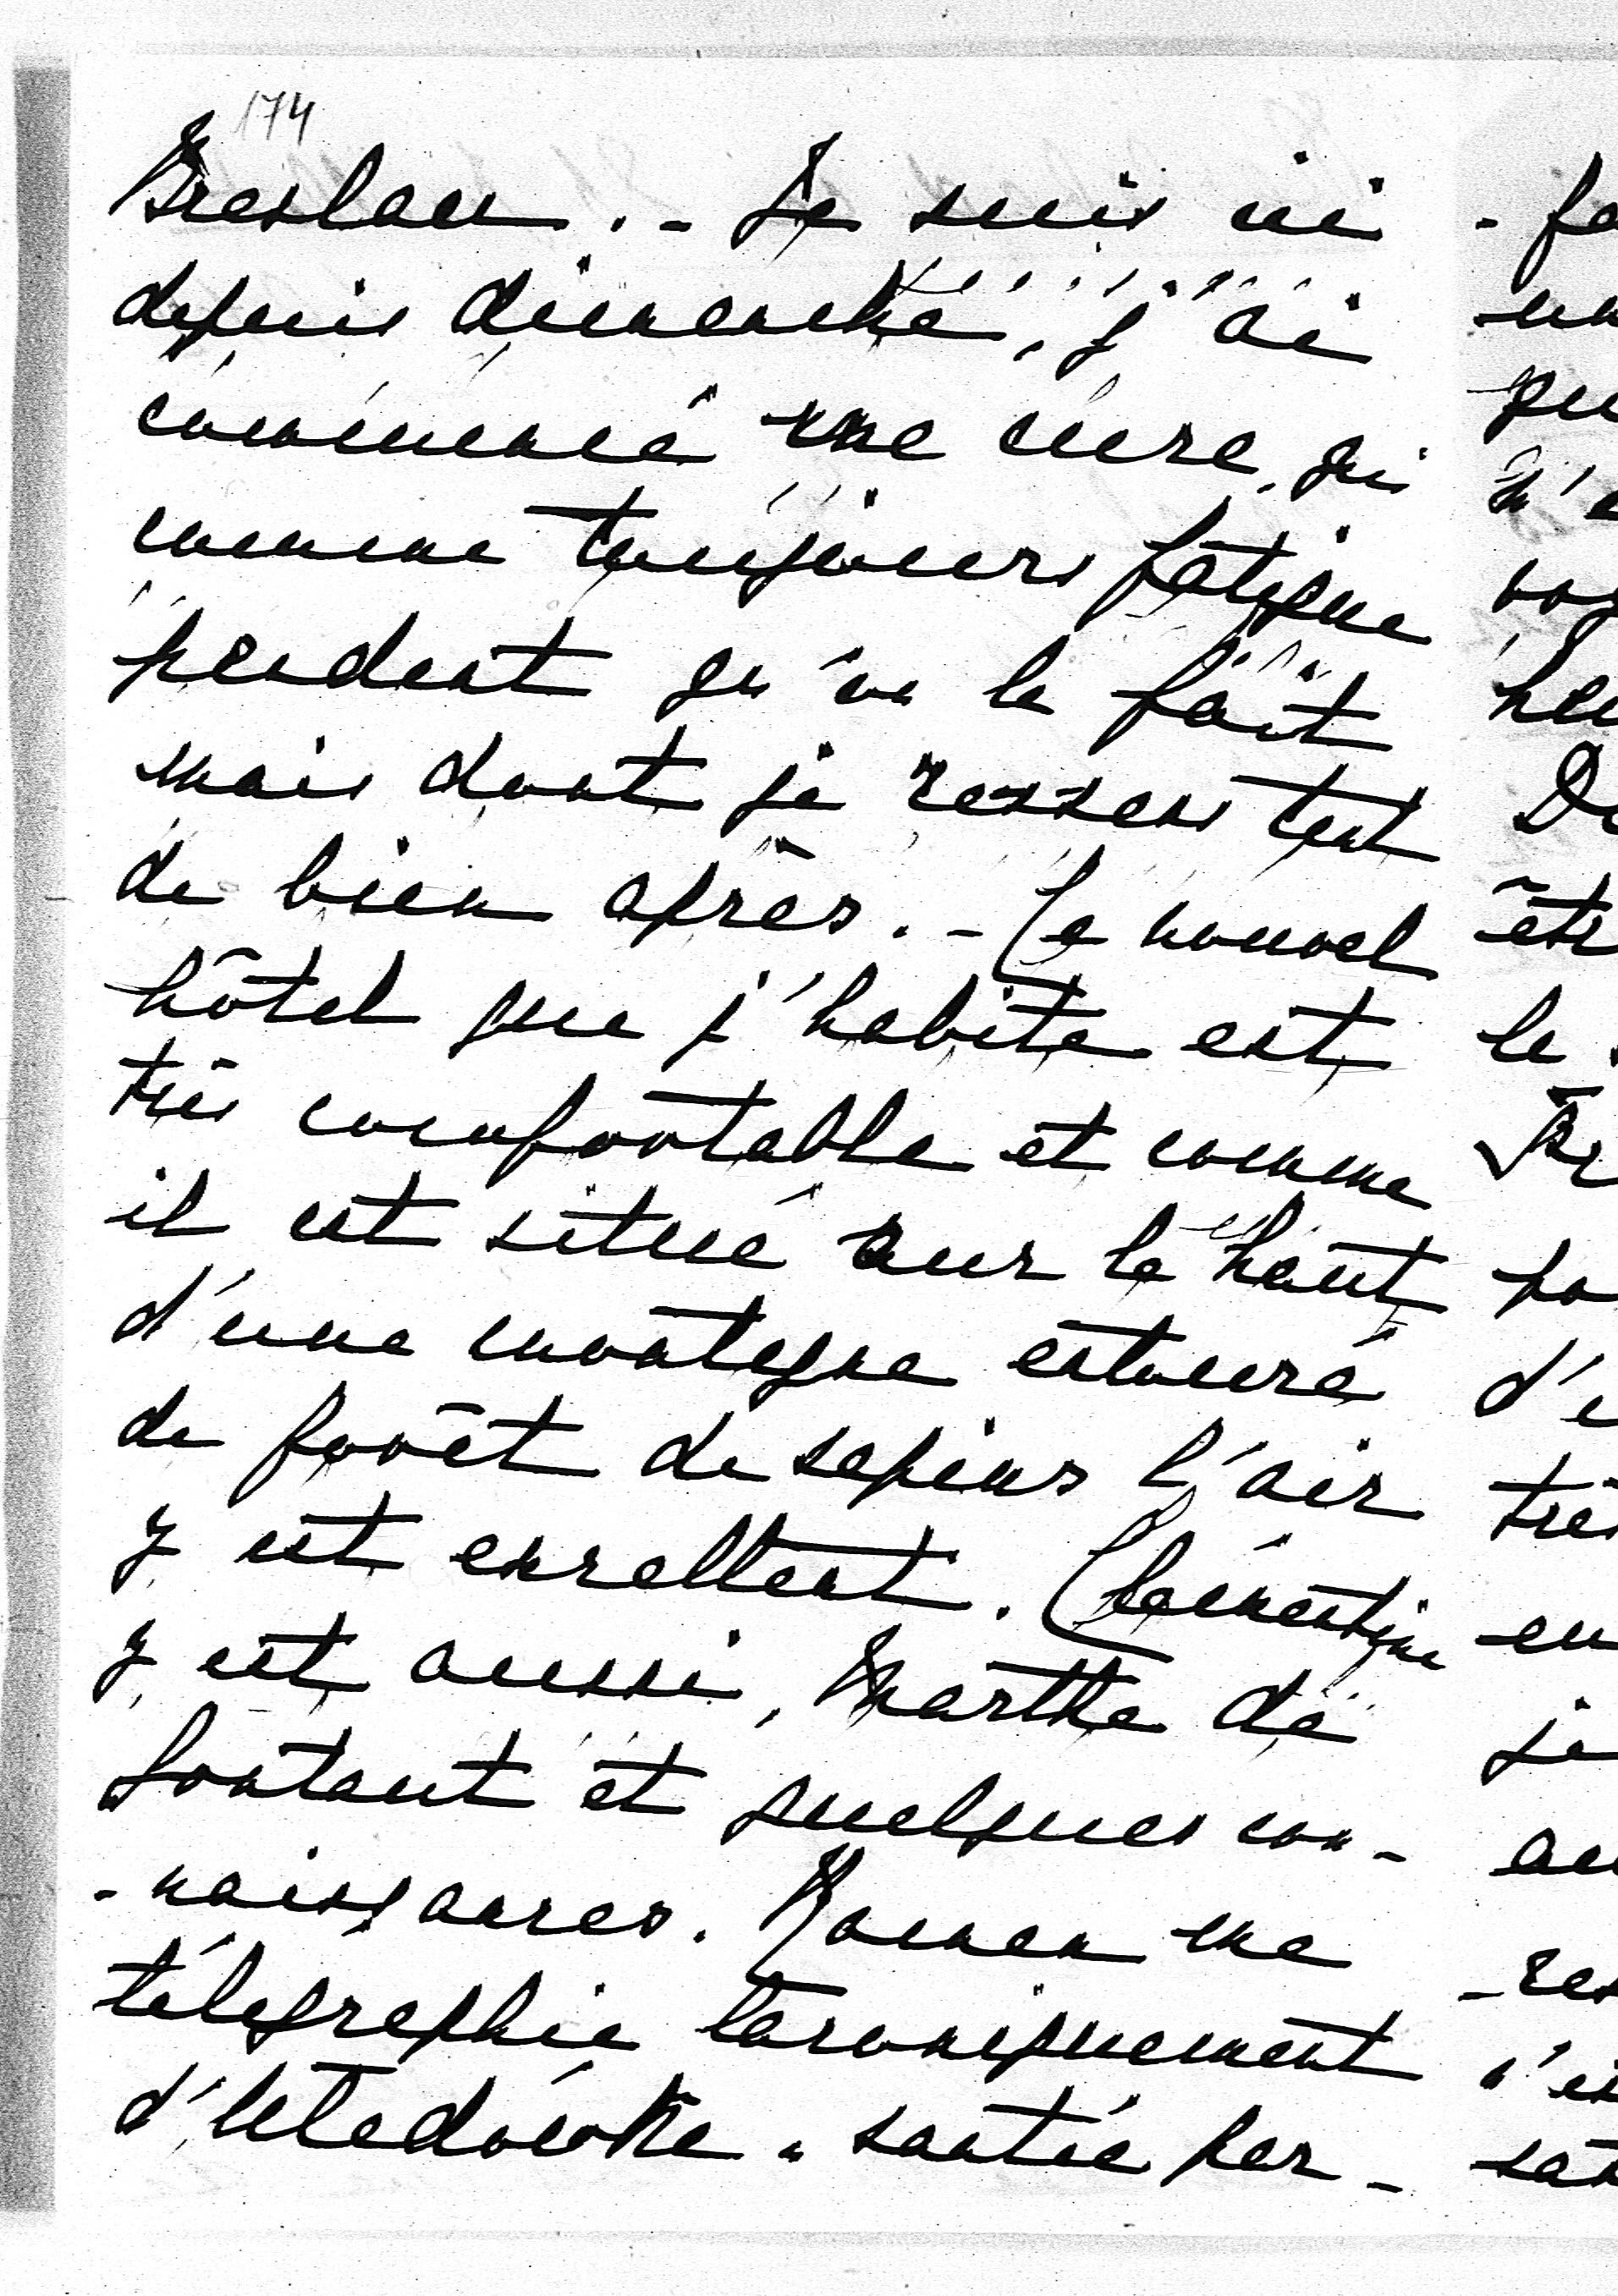 174
Breslau. - Je suis ici
depuis dimanche, j'ai
commencé une cure, qui
comme toujours fatigue
pendant qu'on la fait
mais dont je ressens tant
de bien après. - Le nouvel
hôtel que j'habite est
très comfortable et comme
il est situé sur le haut
d'une montagne entouré
de forêt de sapins l'air
y est excellent. Clémentine
y est aussi, Marthe de
Fontant et quelques con-
-naissances. Roman me
télégraphie laconiquement
d'Uładówka "santé par-
- fa
un
qu
n'a
voy
heu
Do
êtr
le
po
d'e
très
en
je
au
-res
s'es
sat